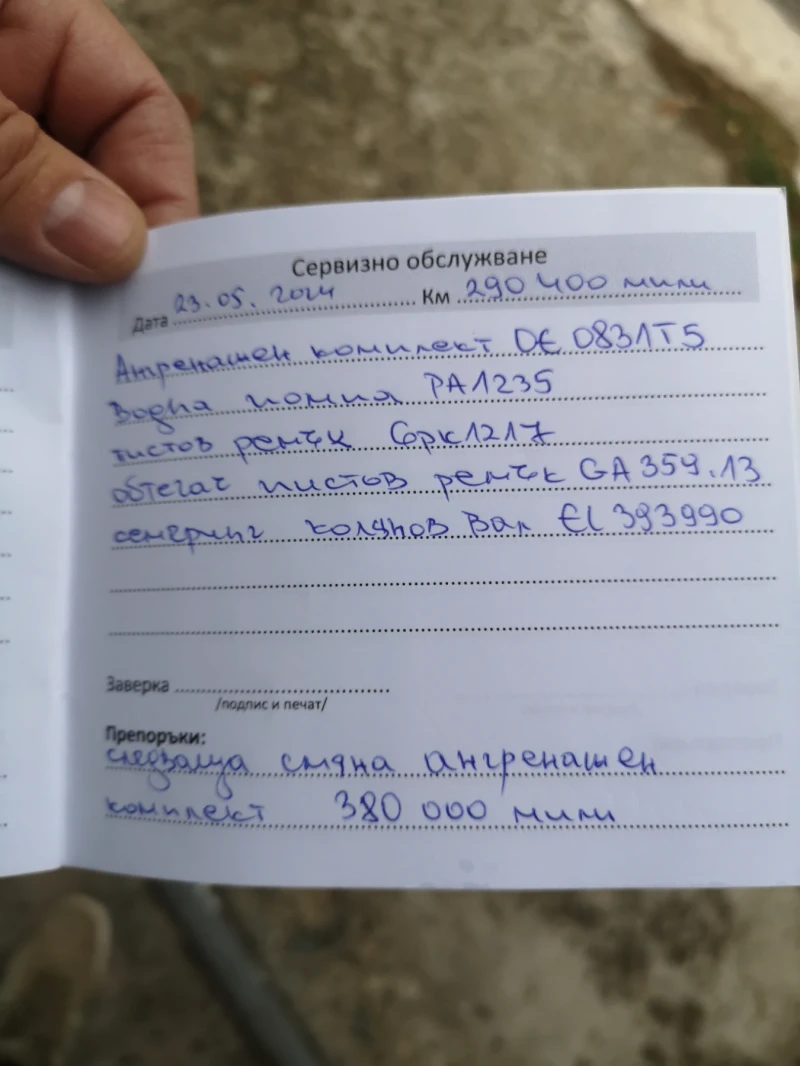 Сервизно обслужване
Дата 23.05.2024 Км 290 400 мили
Ангренашен комплект DE 0831T5
Водна помпа PA1235
пистов ремък 6pk1217
обтегач пистов ремък GA 359.13
семеринг колянов вал El 393990
Заверка
/подпис и печат/
Препоръки:
следваща смяна ангренашен
комплект 380 000 мили